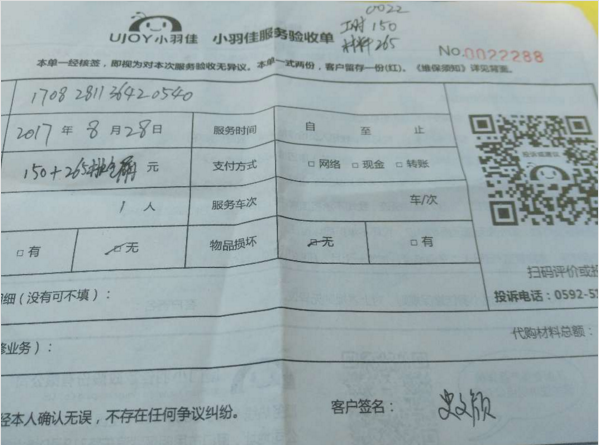 0022
UJOY小羽佳 小羽佳服务验收单 工时150
材料265
No.0022288
本单一经核签，即视为对本次服务验收无异议。本单一式两份，客户留存一份(红)。《维保须知》详见背面。
1708281136420540
2017年8月28日 服务时间 自 至 止
150+265 元 支付方式 □网络 □现金 □转账
1人 服务车次 车/次
□有 □无 物品损坏 □无 □有
扫码评价或投
细（没有可不填）： 投诉电话：0592-5
代购材料总额：
修业务）：
经本人确认无误，不存在任何争议纠纷。 客户签名：